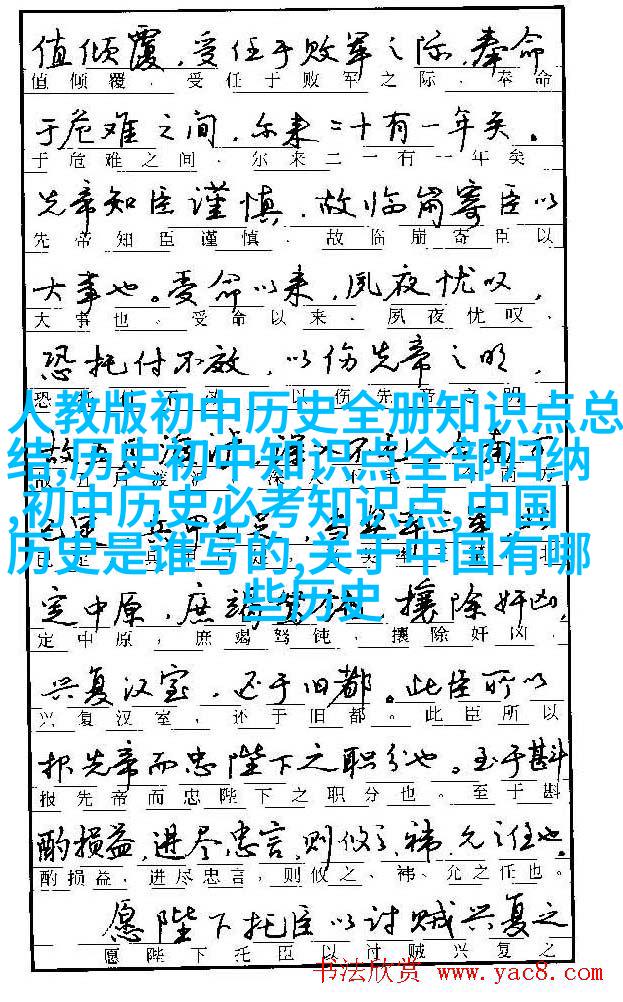 值倾覆，受任于败军之际，奉命
值倾覆，受任于败军之际，奉命
于危难之间，尔来二十有一年矣。
于危难之间，尔来二一有一年矣
先帝知臣谨慎，故临崩寄臣以
先帝知臣谨慎，故临崩寄臣以
大事也。受命以来，夙夜忧叹，
大事也。受命以来，夙夜忧叹，
恐托付不效，以伤先帝之明，
人教版初中历史全册知识点总
结,历史初中知识点全部归纳
,初中历史必考知识点,中国
历史是谁写的,关于中国有哪
些历史
定中原，庶竭驽钝，攘除奸凶，
定中原，庶竭驽钝，攘除奸凶，
兴复汉室，还于旧都。此臣所以
兴复汉室，还于旧都。此臣所以
报先帝而忠陛下之职分也。至于斟
报先帝而忠陛下之职分也。至于斟
酌损益，进尽忠言，则攸之、祎、允之任也。
酌损益，进尽忠言，则攸之、祎、允之任也。
愿陛下托臣以讨贼兴复之
愿陛下托臣以讨贼兴复之
书法欣赏 www.yac8.com